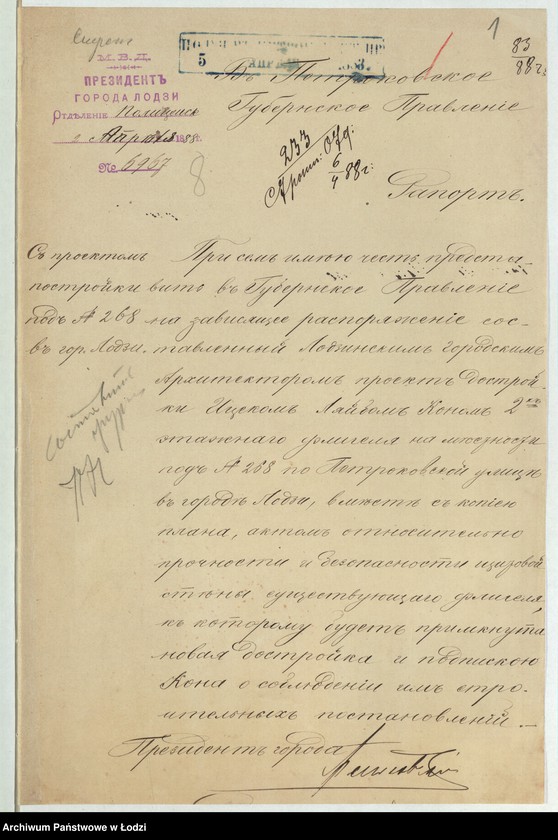 1
83
88 г.
М. В. Д.
ПРЕЗИДЕНТЪ
ГОРОДА ЛОДЗИ
Отдѣленіе Полицейск
2 Апрѣля 1888 г.
№ 5967
8
5 АПРѢЛ
Въ Петроковское
Губернское Правленіе
233
6/4 88 г.
Рапортъ.
Съ проектомъ
постройки
подъ № 268
въ гор. Лодзи.
При семъ имѣю честь предста-
вить въ Губернское Правленіе
на зависящее распоряженіе сос-
тавленный Лодзинскимъ Городскимъ
Архитекторомъ проектъ достройки
ки Ицекомъ Ляйбомъ Кономъ 2хъ
этажнаго флигеля на мѣстности
подъ № 268 по Петроковской улицѣ
въ городѣ Лодзи, вмѣстѣ съ копіею
плана, актомъ относительно
прочности и безопасности
стѣны существующаго флигеля,
къ которому будетъ примкнута
новая достройка и подпискою
Кона о соблюденіи имъ стро-
ительныхъ постановленій.
Президентъ города
Archiwum Państwowe w Łodzi